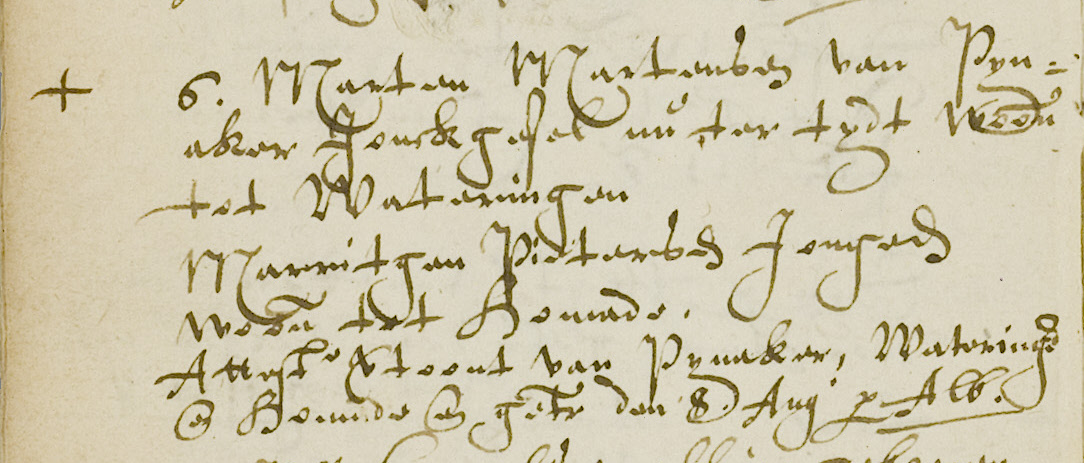 + 6. Marten Martensen van Pyn=
aker Jonckgesel nu ter tydt woon
tot Wateringen
Marritgen Pietersd Jonged
woon tot Homade.
Attest vertoont van Pynaker, Wateringe
en Homade en getr den 8 Aug p Alb.